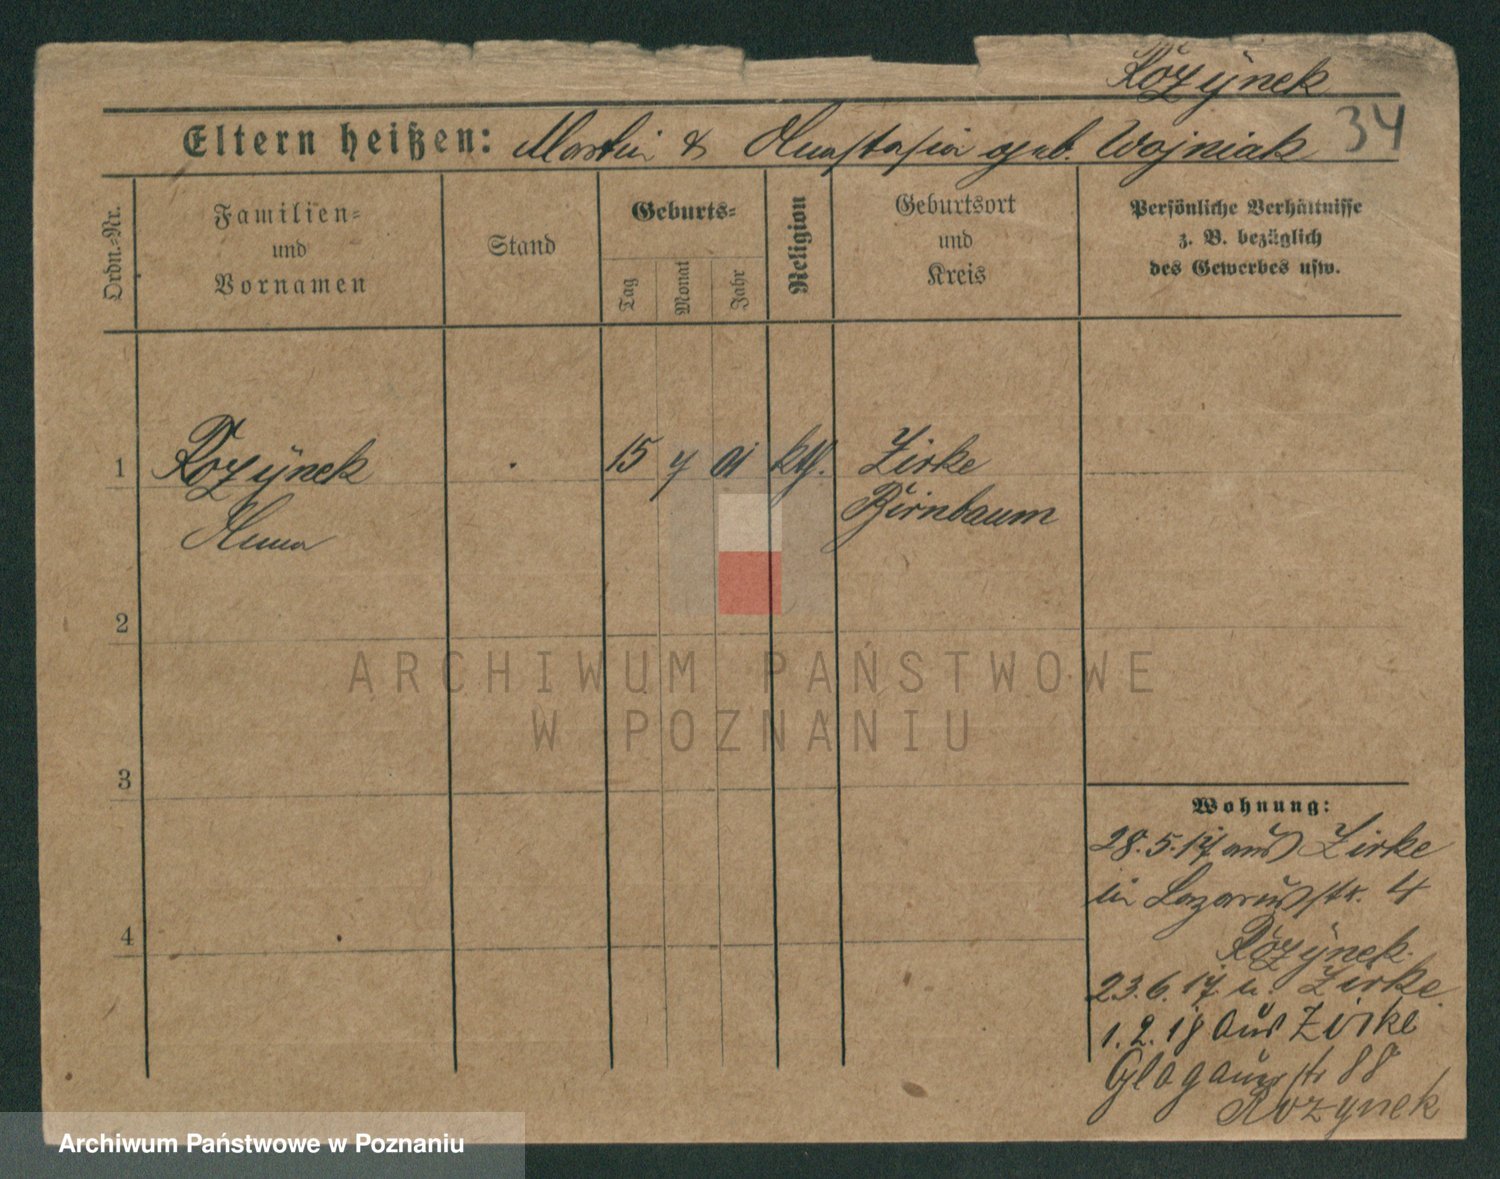 Rożynek
34
Eltern heißen: Martin & Anastasia geb. Wojniak
Ordn.-Nr.
Familien-
und
Vornamen
Stand
Geburts-
Tag
Monat
Jahr
Religion
Geburtsort
und
Kreis
Persönliche Verhältnisse
z. B. bezüglich
des Gewerbes usw.
1
Rozynek
15 7 01 kth. Zirke
Anna
Birnbaum
2
ARCHIWUM PAŃSTWOWE
W POZNANIU
3
Wohnung:
28.5.17 aus Zirke
in Lazarusstr. 4
Rożynek.
4
23.6.17 n. Zirke
1.2.18 aus Zirke
Glogauerstr 88
Rozynek
Archiwum Państwowe w Poznaniu